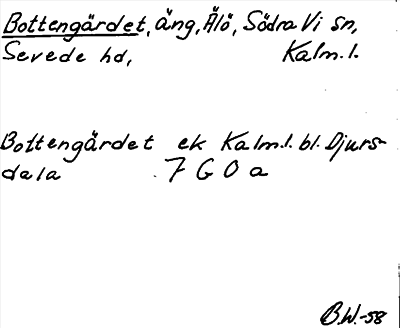 Bottengärdet, äng, Ålö, Södra Vi sn,
Sevede hd, Kalm.l.
Bottengärdet ek Kalm.l. bl. Djurs-
dala 7 G 0 a
B.W.-58